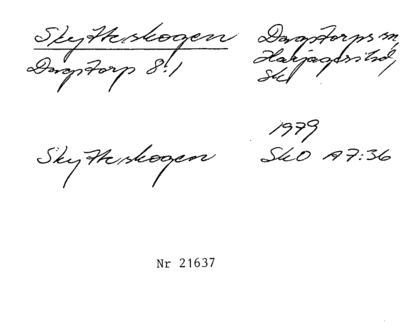 Skytteskogen
Dagstorp 8:1
Dagstorps sn,
Harjagers hd,
Sk
Skytteskogen
1979
SkO A7:36
Nr 21637